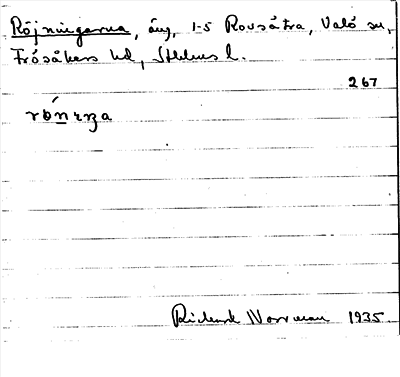 Röjningarna, äng, 1-5 Rovsätra, Valö sn,
Frösåkers hd, Sthlms l.
267
Rickard Norrman 1935.